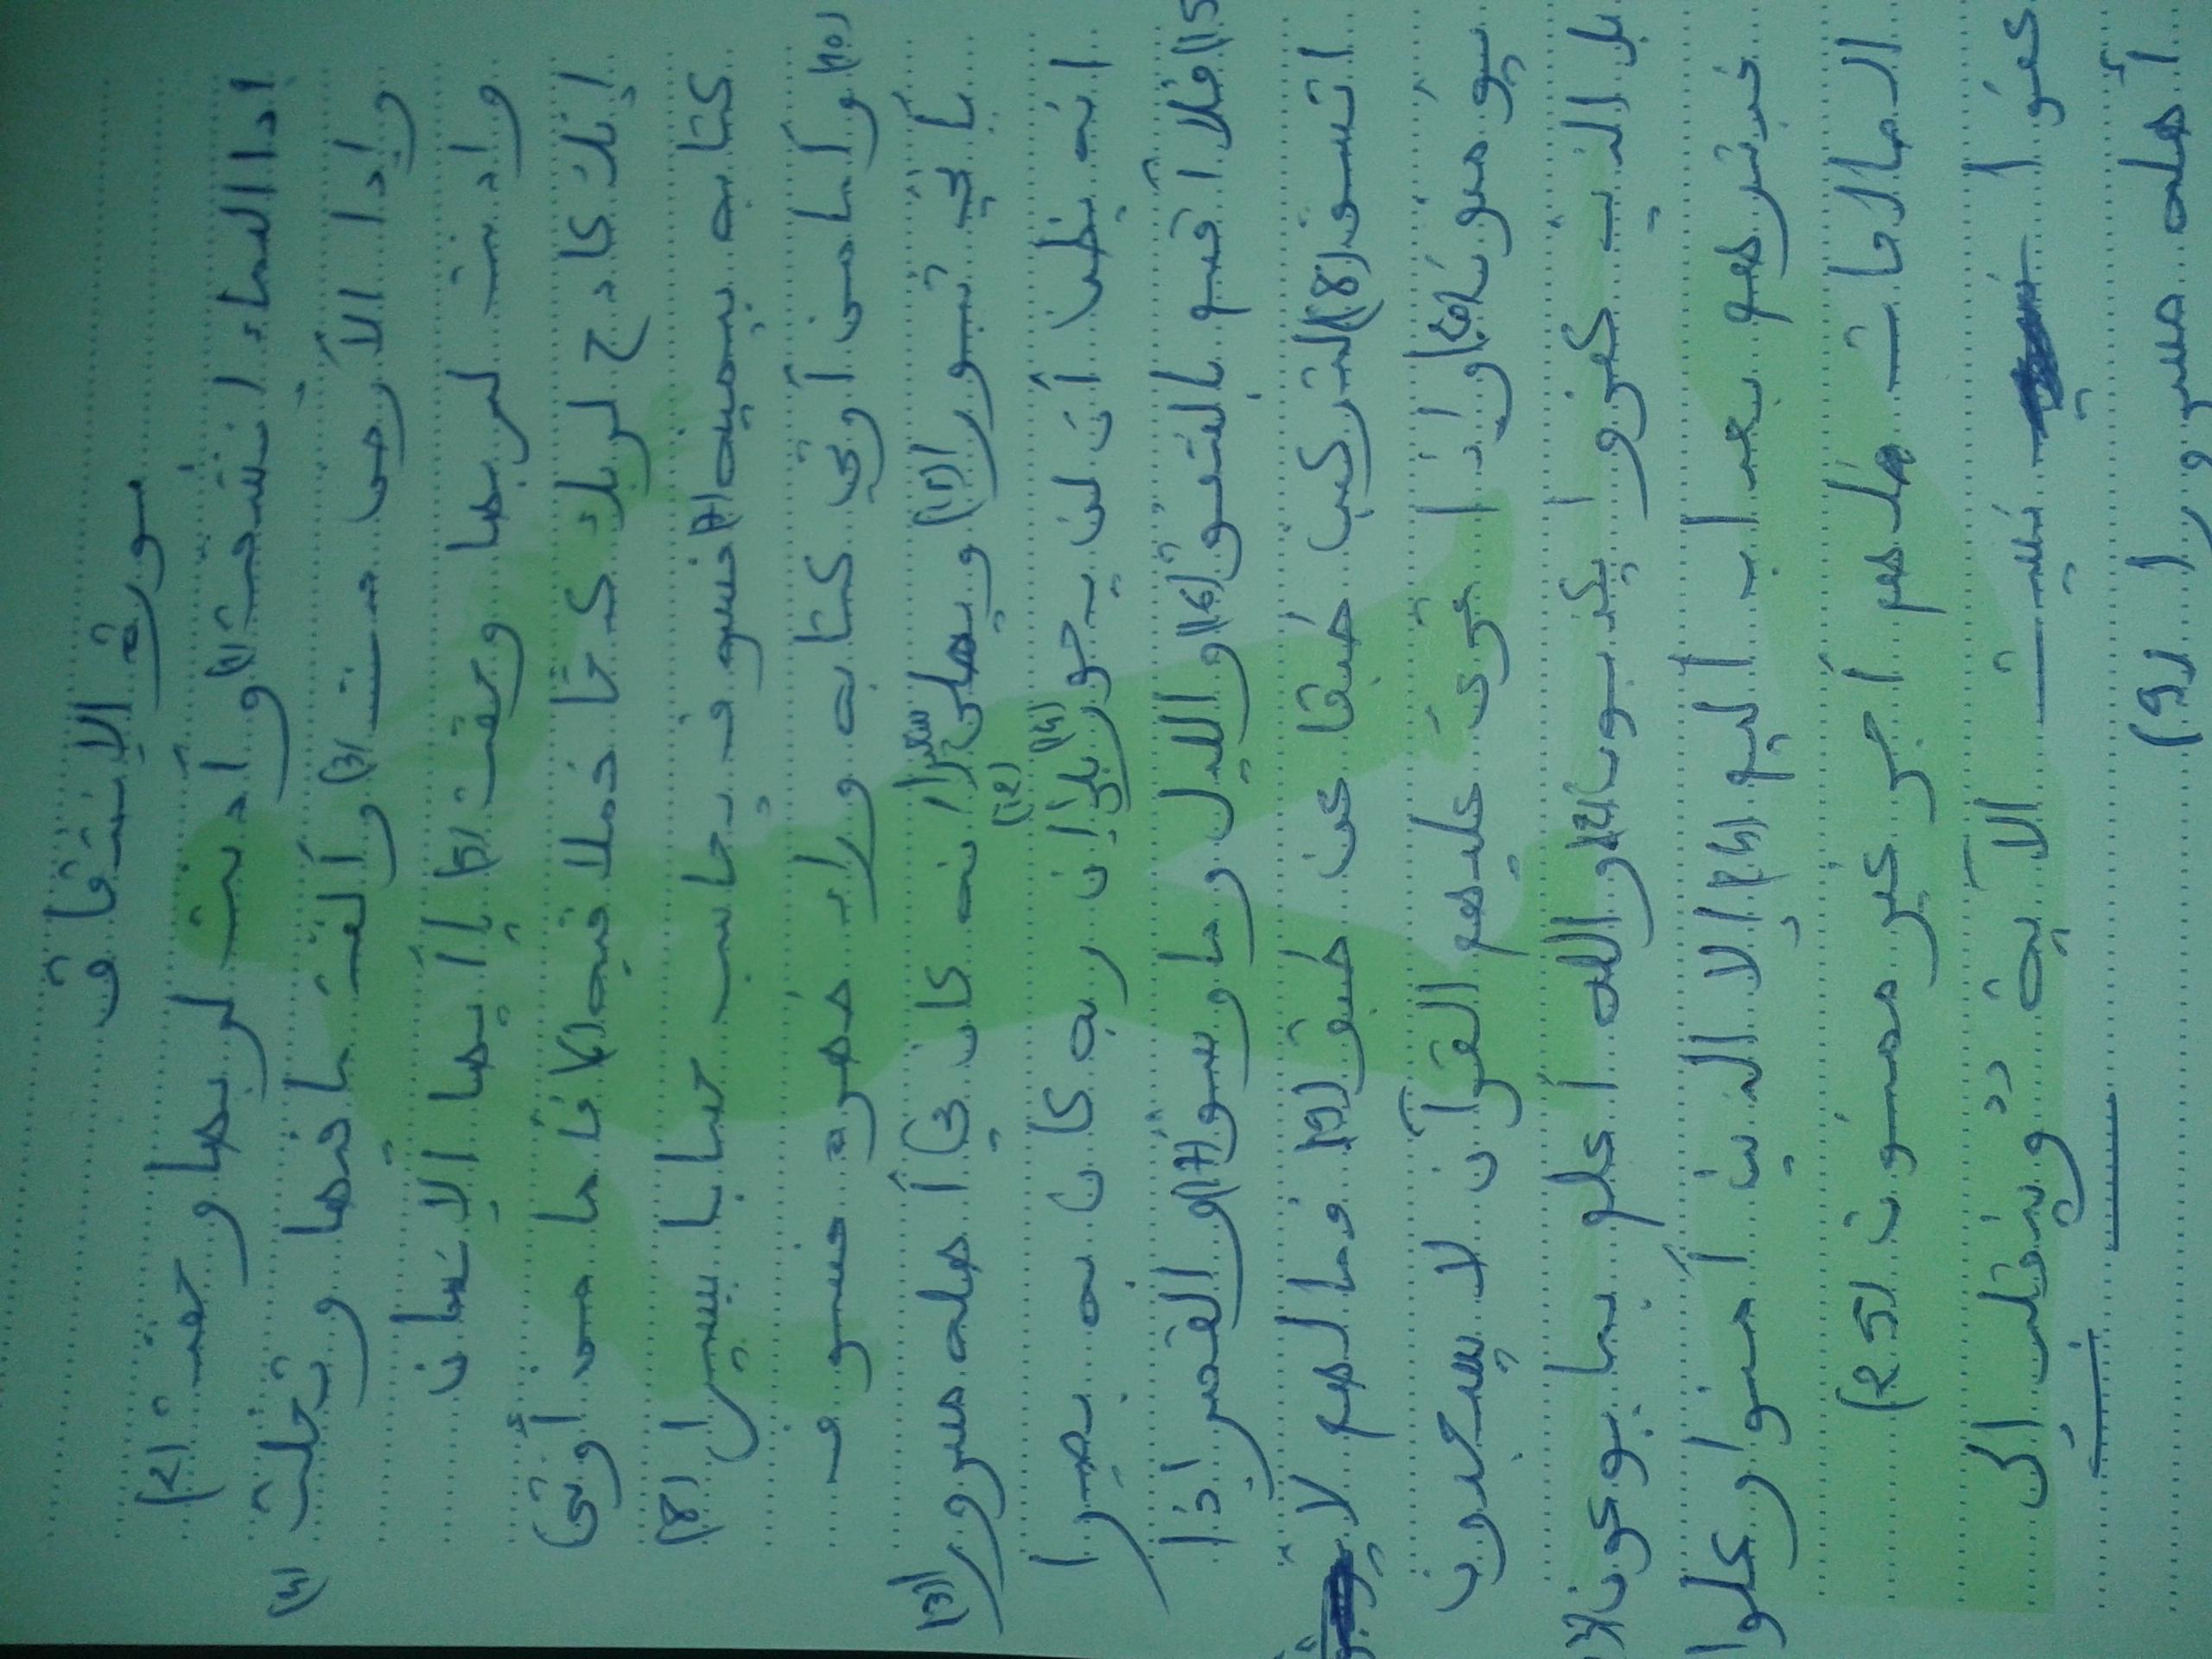 سورة الانشقاق
إدا السماء انشقت (1) وأدنت لربها وحقت (2)
وإدا الأرض مدت (3) وألقت مافيها وتخلت (4)
وادنت لربها وحقت (5) ياأيها الإنسان
إنك كادح لربك كدحا فملاقيه (6) فأما من أوتي
كتابه بيمينه (7) فسوف يحاسب حسابا يسيرا (8)
وأما من أوتي كتابه وراء ظهره فسوف (10)
يدعو ثبورا (11) ويصلى سعيرا (12) انه كان في أهله مسرورا (13)
انه يظن أن لن يحور (14) بلى إن ربه كان به بصيرا (15)
فلا أقسم بالشفق (16) والليل وما وسق (17) والقمر اذا
اتسق (18) لتركبن طبقا عن طبق (19) فما لهم لا
يومنون (20) واذا قرئ عليهم القرآن لا يسجدون
بل الذين كفروا يكذبون (22) والله أعلم بما يوعون (23)
فبشرهم بعذاب أليم (24) إلا الذين آمنوا وعملوا
الصالحات لهم أجر غير ممنون (25)
عفوا نسيت الآية وينقلب الى
أهله مسرورا (9)